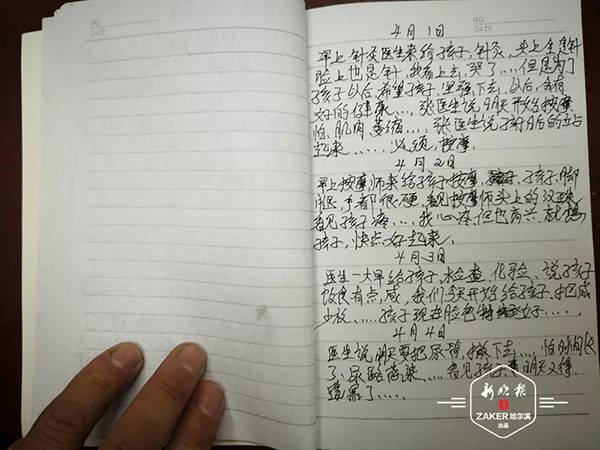 NO.
DATE
NO.
DATE
4月1日
早上针灸医生来给孩子,针灸,头上全是针
脸上也是针,我看上去,哭了....但是为了
孩子以后,希望孩子,坚强,下去,以后,会有
好的健康....,张医生说明天开始按摩
怕,肌肉,萎缩....,张医生说孩子以后的
起来......必须,按摩.
4月2日
早上按摩师来给孩子按摩,孩子,脚
腿,手都很,硬,看见按摩师头上的汉珠
看见孩子疼....我心疼,但也高兴,就
孩子,快点好起来,
4月3日
医生一大早给孩子,检查,化验,说孩子
饮食有点,咸,我们今天开始给孩子,把咸
少放.....孩子现在脸色特好.....
4月4日
医生说,明天要把尿管,撤下去....怕时间长
了,尿路感染....看见孩子,明天又得
遭罪了....
新晚报
ZAKER哈尔滨
出品